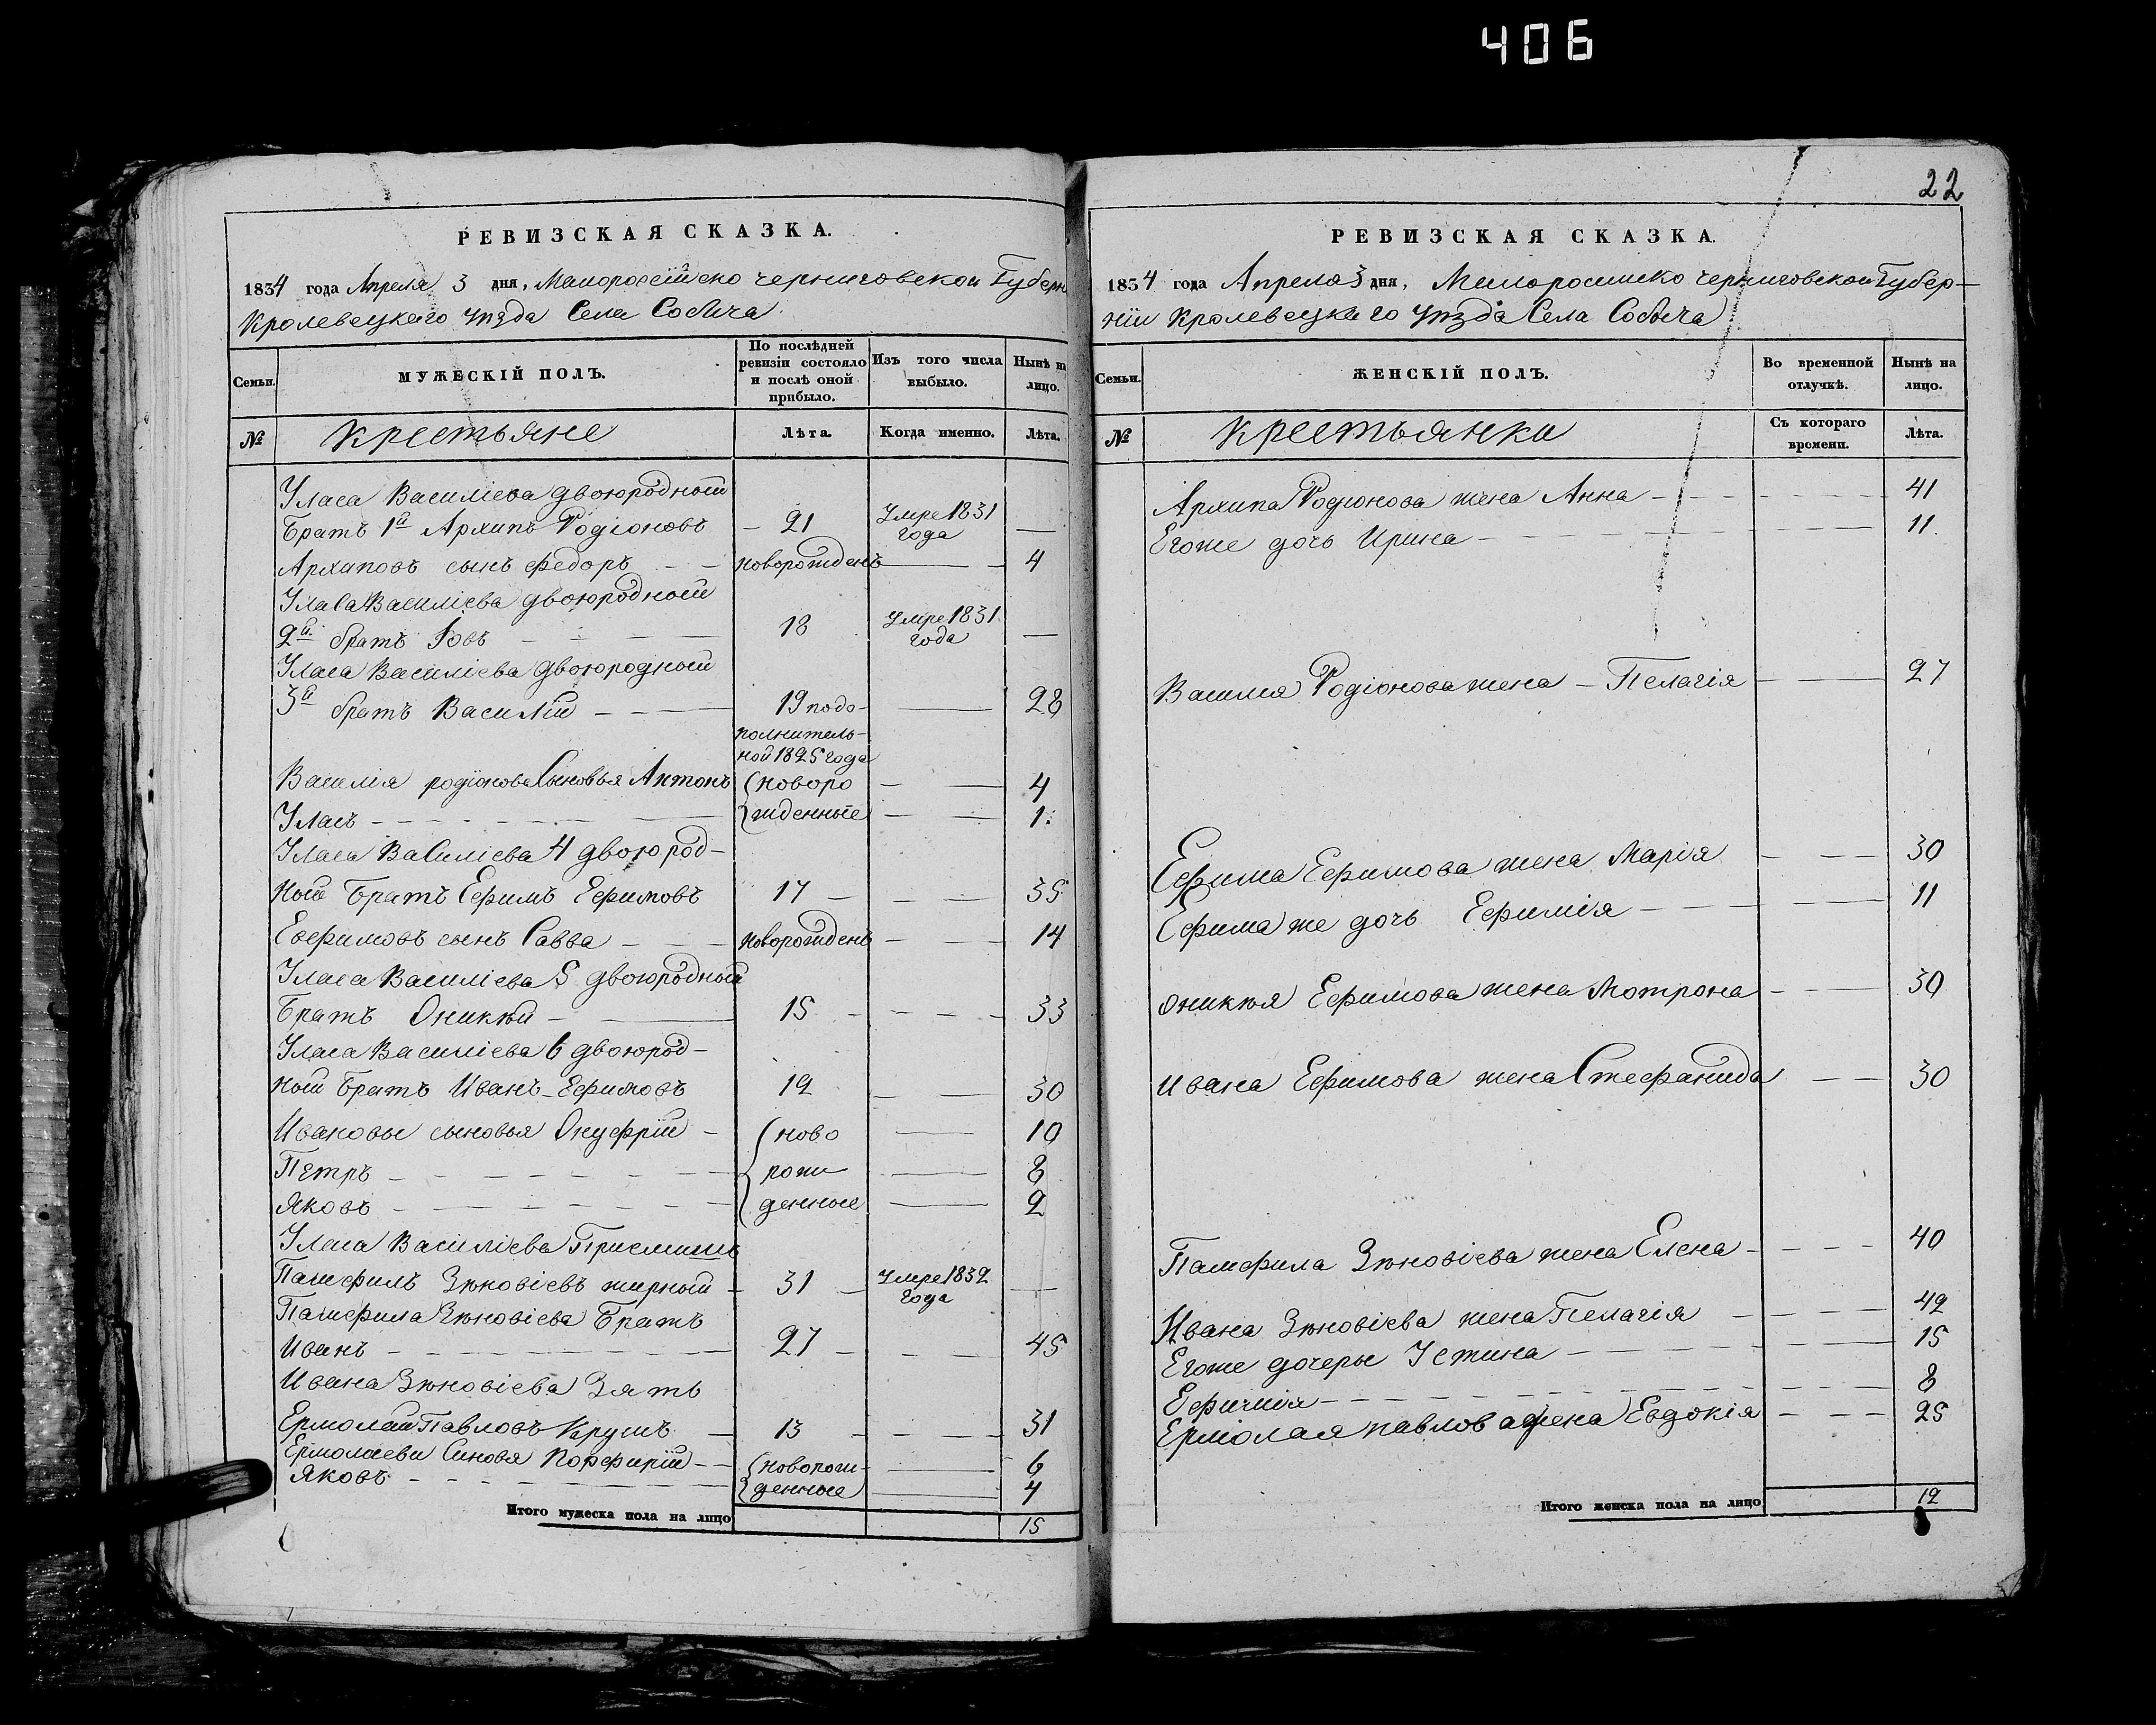 406
РЕВИЗСКАЯ СКАЗКА.
1834 года Апреля 3 дня, Малоросейско Черниговской Губерн
Кролевецкаго уѣзда Села Собича
Семьи. МУЖЕСКІЙ ПОЛЪ. По послѣдней ревизіи состояло и послѣ оной прибыло. Изъ того числа выбыло. Нынѣ на лицо.
№ Крестьяне Лѣта. Когда именно. Лѣта.
Уласа Василіева двоюродной
Братъ 1й Архипъ Родіоновъ – 21 Умре 1831 года —
Архиповъ сынъ Федоръ — новорожденъ — 4
Уласа Василіева двоюродной
2й братъ Іовъ — 18 Умре 1831 года —
Уласа Василіева двоюродной
3й братъ Василій — 19 подо- — 28
полнитель-
ной 1825 года
Василія родіонова Сыновья Антонъ новоро — 4
Уласъ — жденные — 1.
Уласа Василіева 4 двоюрод-
ной Братъ Ефимъ Ефимовъ 17 — 35
Евфимовъ сынъ Савва — новорожденъ — 14
Уласа Василіева 5 двоюродный
Братъ Оникѣй — 15 — 33
Уласа Василіева 6 двоюрод-
ной Братъ Иванъ Ефимовъ 12 — 30
Ивановы сыновья Онуфрій – ново — 10
Петръ — рож — 8
Яковъ — денные — 2
Уласа Василіева Приемишъ
Памфилъ Зѣновіевъ жирный – 31 – Умре 1832 года —
Памфила Зѣновіева Братъ
Иванъ — 27 — 45
Ивана Зѣновіева Зять
Ермолай Павловъ Крушъ — 13 — 31
Ермолаеви Синовя Порфирій — новорож- — 6
Яковъ — денные — 4
Итого мужеска пола на лицо 15
22
РЕВИЗСКАЯ СКАЗКА.
1834 года Апреля 3 дня, Малоросииско черниговской Губер-
ніи Кролевецкаго уѣзда Села Собича
Семьи. ЖЕНСКІЙ ПОЛЪ. Во временной отлучкѣ. Нынѣ на лицо.
№ Крестьянки Съ котораго времени. Лѣта.
Архипа Родіонова жена Анна — 41
Егоже дочь Ирина — 11.
Василия Родіонова жена – Пелагія — 27
Ефима Ефимова жена Марія — 30
Ефима же дочь Ефимія — 11
Оникѣя Ефимова жена Мотрона — 30
Ивана Ефимова жена Стефанида — 30
Памфила Зѣновіева жена Елена — 40
Ивана Зѣновіева жена Пелагія — 42
Егоже дочеры Устина — 15
Ефимія — 8
Ермолая павлова жена Евдокія — 25
Итого женска пола на лицо 12